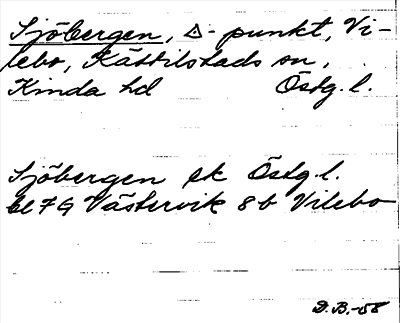 Sjöbergen, △-punkt, Vi-
lebo, Kättilstads sn,
Kinda hd Östg.l.
Sjöbergen ek Östg.l.
bl 7G Västervik 8b Vilebo
D.B.-58